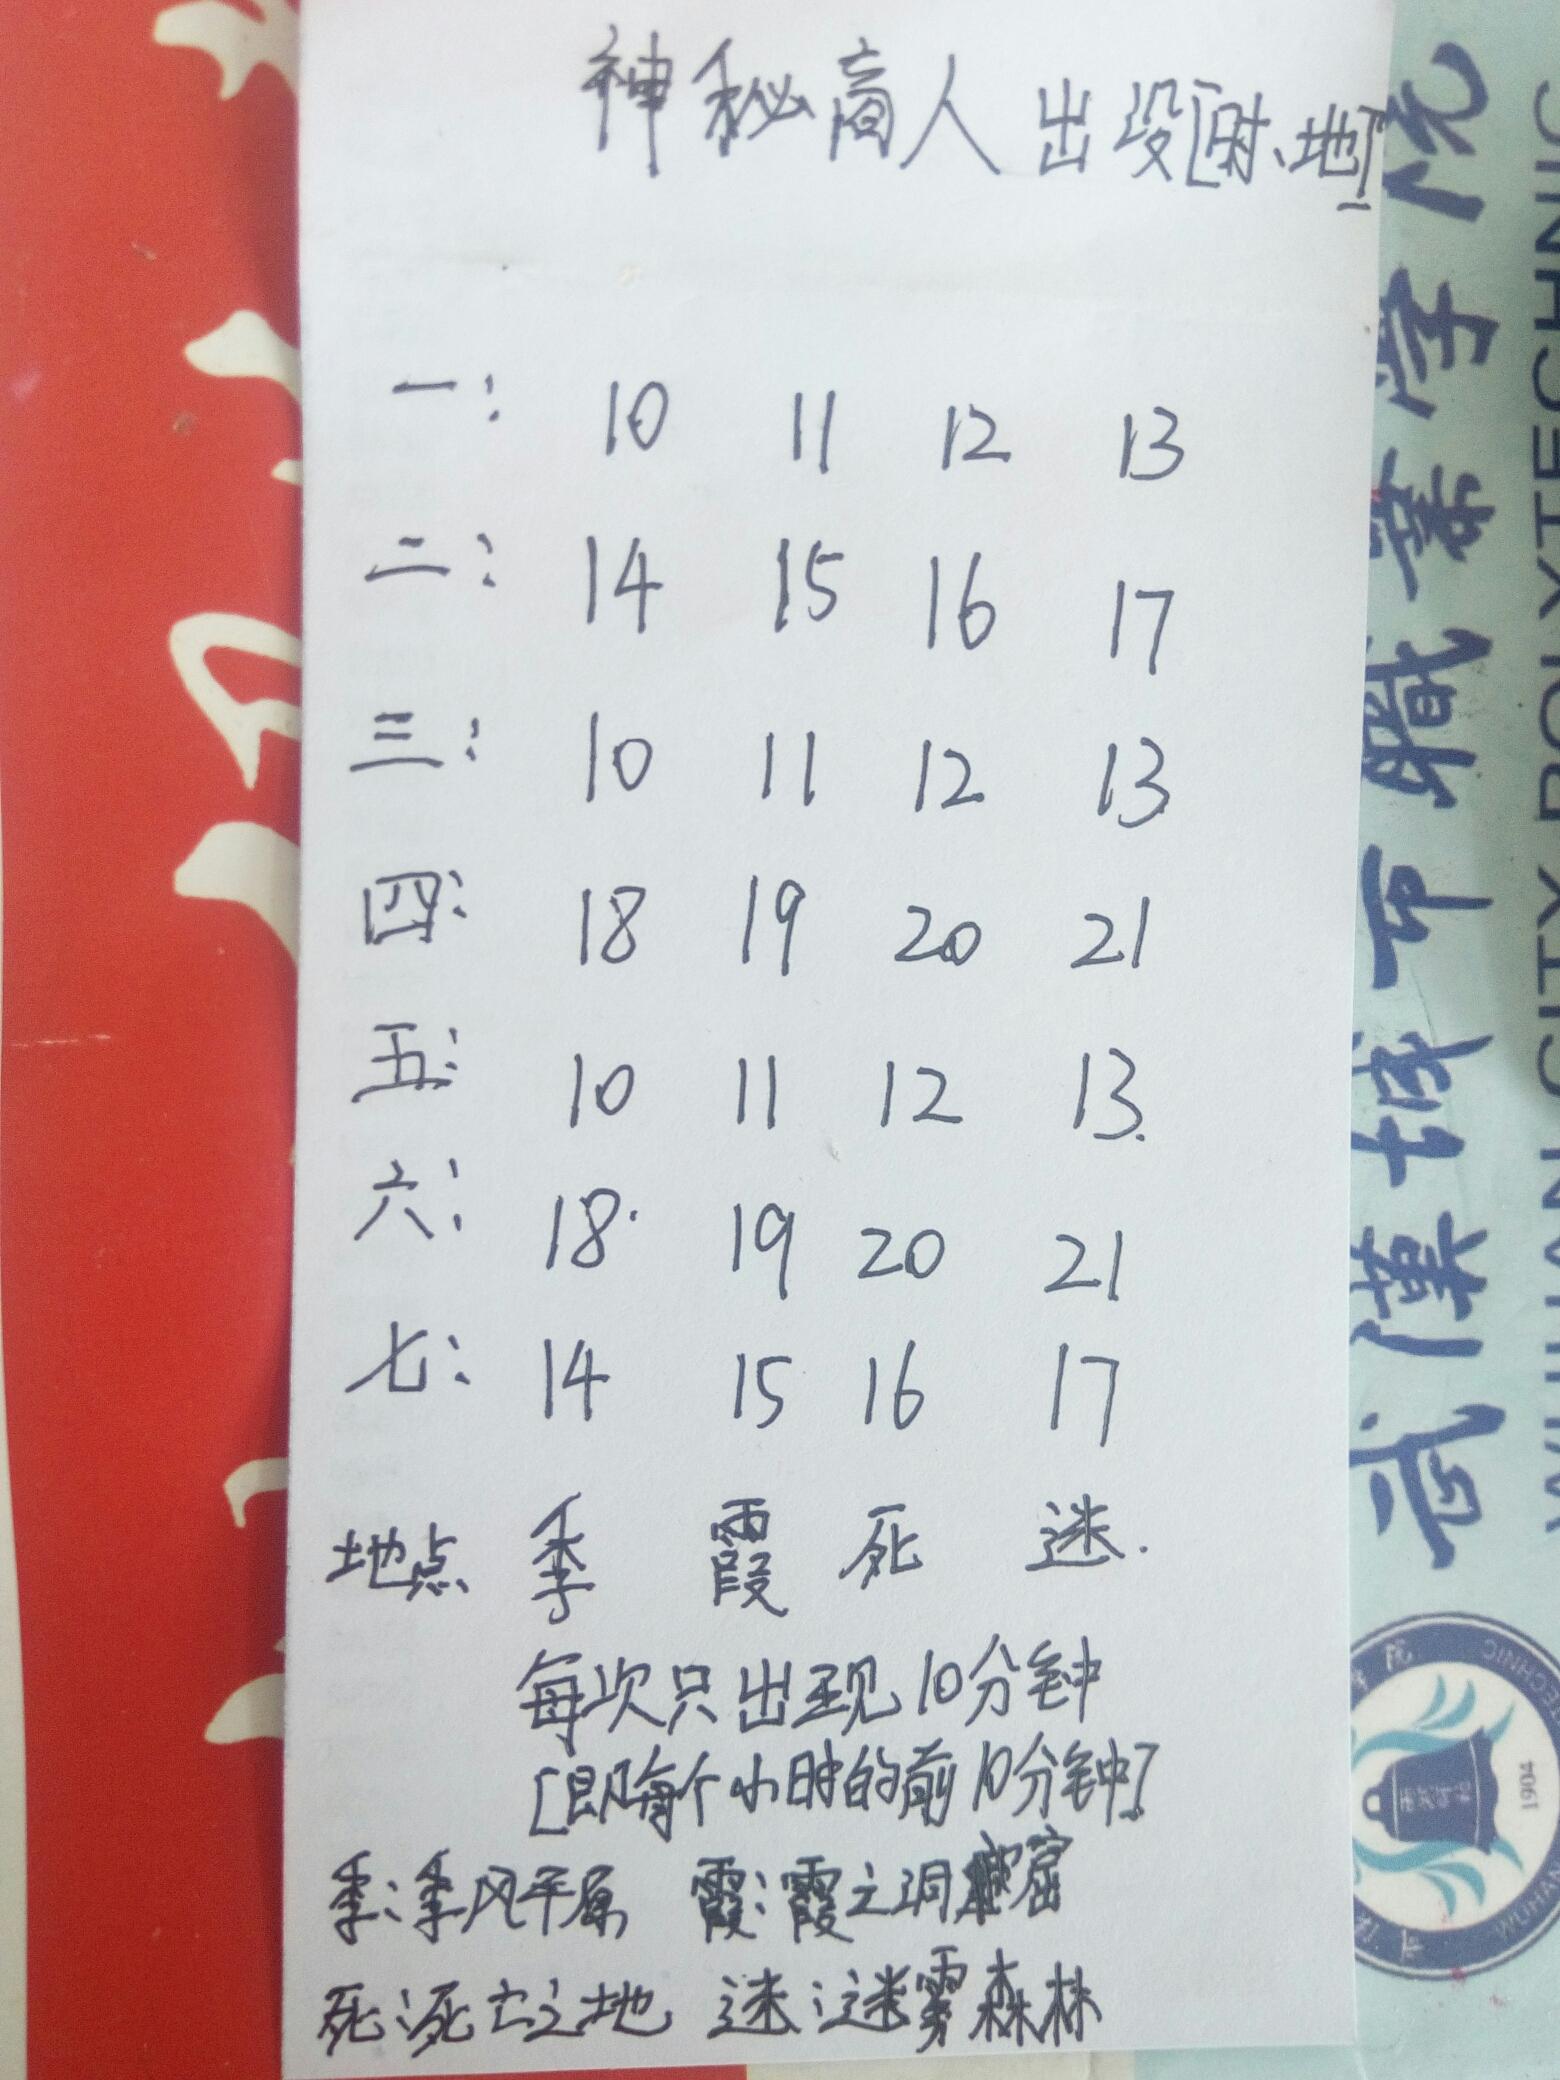 神秘商人出没[时、地]
一: 10 11 12 13
二: 14 15 16 17
三: 10 11 12 13
四: 18 19 20 21
五: 10 11 12 13.
六: 18. 19 20 21
七: 14 15 16 17
地点 季 霞 死 迷.
每次只出现10分钟
[即每个小时的前10分钟]
季:季风平原 霞:霞之洞窟
死:死亡之地 迷:迷雾森林
武漢城市職業學院
WUHAN CITY POLYTECHNIC
1904